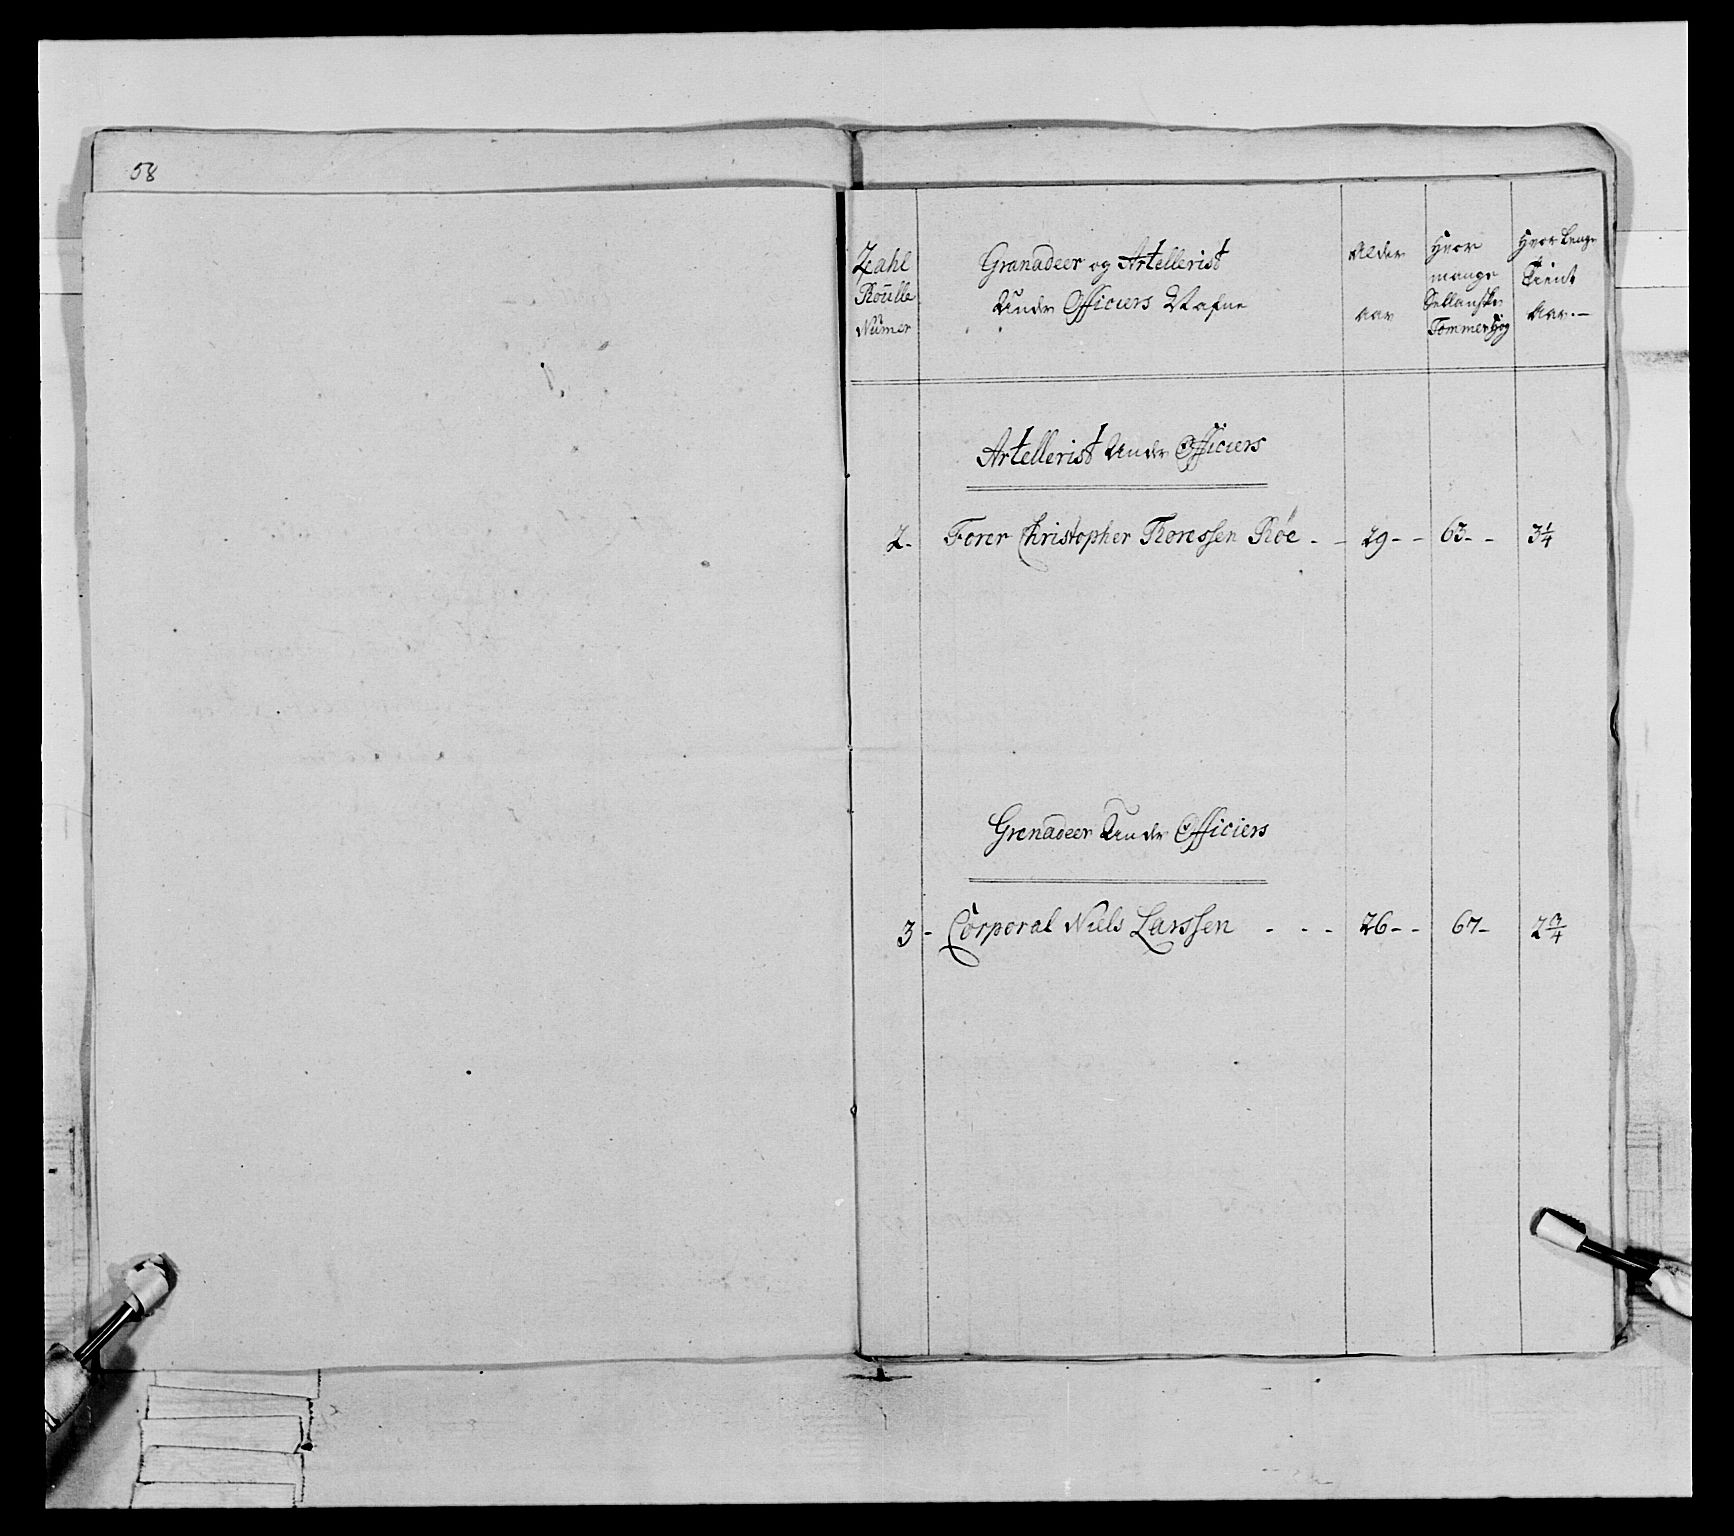 58
Zahl Roulle Numer
Granadeer og Artellerist
Under Officiers Nafne
Alder aar
Hvor mange Sellanske Tommer Høg
Hvor lenge Tient Aar. -
Artellerist Under Officiers
2- Forer Christopher Thoressen Röe - - 29 - - 63 - - 3 1/4
Grenadeer Under Officiers
3 - Corporal Niels Larssen - - - 26 - - 67 - 2 3/4